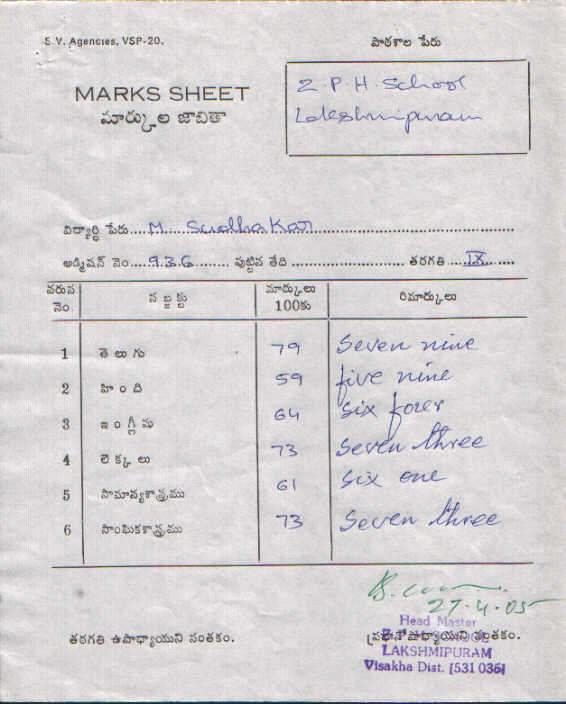 S.V. Agencies, VSP-20.
పాఠశాల పేరు
MARKS SHEET
మార్కుల జాబితా
Z.P.H. School
Lakshmipuram
విద్యార్థి పేరు.... M. Sudhakar
అడ్మిషన్ నెం... 936 ........ పుట్టిన తేది ........ తరగతి .... IX
వరుస నెం. సబ్జక్టు మార్కులు 100కు రిమార్కులు
1 తెలుగు 79 Seven nine
2 హింది 59 five nine
3 ఇంగ్లీషు 64 six four
4 లెక్కలు 73 Seven three
5 సామాన్యశాస్త్రము 61 Six one
6 సాంఘికశాస్త్రము 73 Seven three
27.4.05
Head Master
తరగతి ఉపాధ్యాయుని సంతకం. ప్రధానోపాధ్యాయుని సంతకం.
LAKSHMIPURAM
Visakha Dist. [531 036]